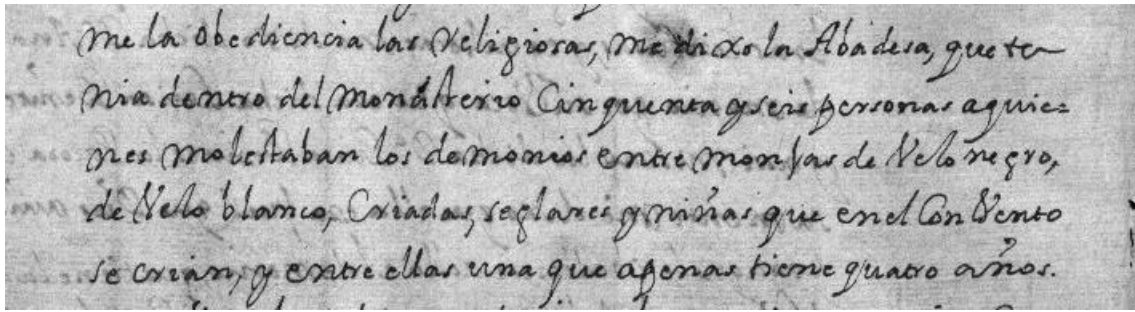 me la obediencia las Religiosas, me dixo la Abadesa, que te
nia dentro del monasterio Cinquenta y seis personas a quie=
nes molestaban los demonios entre monjas de Velo negro,
de Velo blanco, Criadas, seglares y niñas que en el ConVento
se crian, y entre ellas una que apenas tiene quatro años.